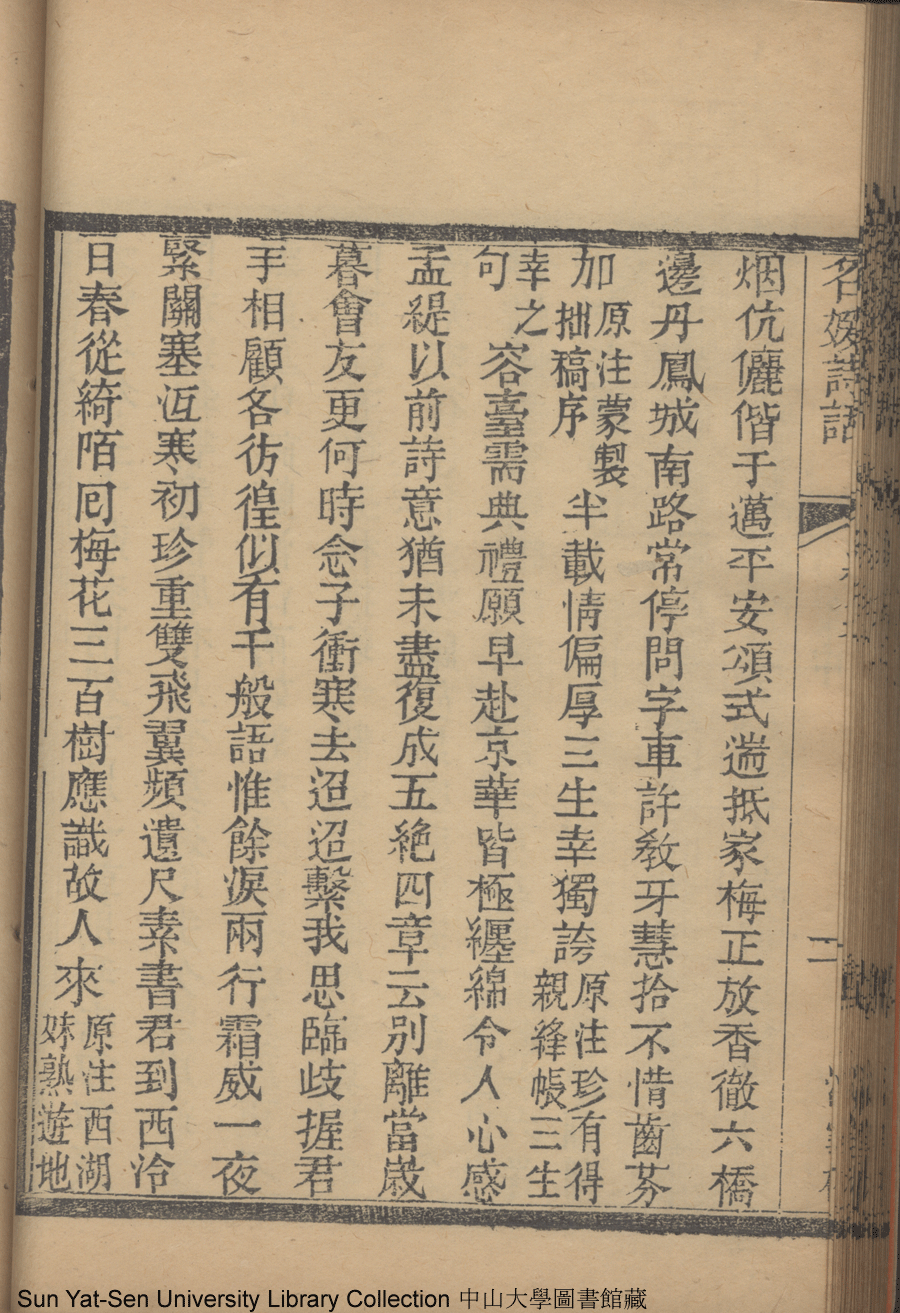 名媛詩話
二
烟伉儷偕于邁平安頌式遄抵家梅正放香徹六橋
邊丹鳳城南路常停問字車許敎牙慧拾不惜齒芬
加原注蒙製拙稿序半載情偏厚三生幸獨誇原注珍有得親絳帳三生
幸之句容臺需典禮願早赴京華皆極纏綿令人心感
孟緹以前詩意猶未盡復成五絶四章云別離當歲
暮會友更何時念子衝寒去迢迢繫我思臨歧握君
手相顧各彷徨似有千般語惟餘淚兩行霜威一夜
緊關塞沍寒初珍重雙飛翼頻遺尺素書君到西泠
日春從綺陌囘梅花三百樹應識故人來原注西湖妹熟遊地
Sun Yat-Sen University Library Collection 中山大學圖書館藏